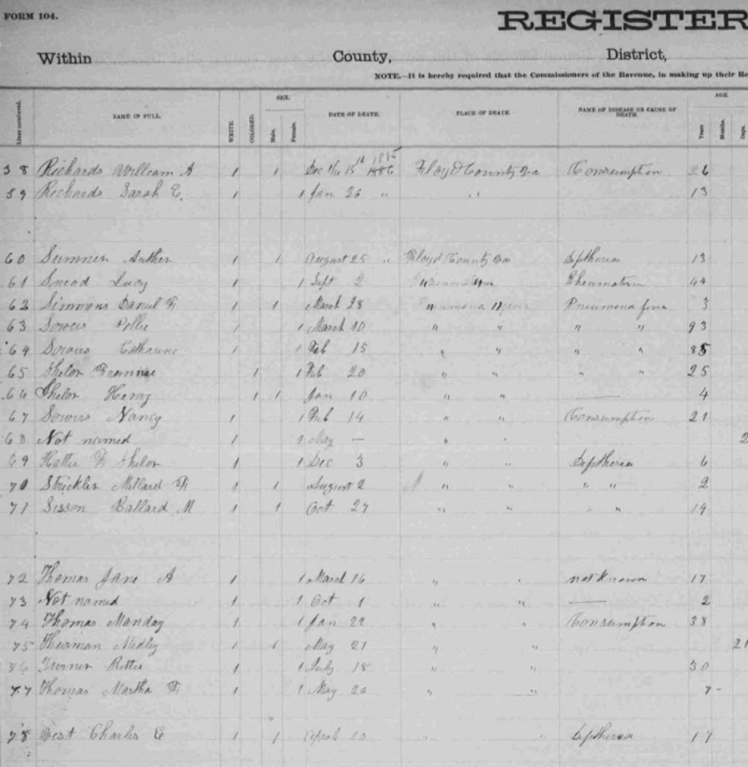 FORM 104.
REGISTER
Within County, District,
NOTE.—It is hereby required that the Commissioners of the Revenue, in making up their Re
Lines numbered. NAME IN FULL. WHITE. COLORED. SEX. Male. Female. DATE OF DEATH. PLACE OF DEATH. NAME OF DISEASE OR CAUSE OF DEATH. AGE. Years Months. Days.
58 Richards William A 1 1 Dec 15th 1885 Floyd County Va Consumption 26
59 Richards Sarah E. 1 1 Jan 26 " " 13
60 Sumner 1 1 August 25 " Floyd County Va 13
61 Lucy 1 1 Sept 2 Rheumatism 44
62 Simmons Daniel 1 1 March 28 Pneumonia fever 3
63 Sowers 1 1 March 10 " " " " 93
64 Sowers Catharine 1 1 Feb 15 " " " " 85
65 Shelor 1 1 Feb 20 " " " " 25
66 Shelor Henry 1 1 Jan 10 " " — 4
67 Sowers Nancy 1 1 Feb 14 " " Consumption 21
68 Not named 1 1 May — " " 2
69 Hattie Shelor 1 1 Dec 3 " " 6
70 Strickler Millard 1 1 August 2 " " " " 2
71 Sisson Ballard M 1 1 Oct 27 " " " " 19
72 Thomas Jane A 1 1 March 16 " " not Known 17
73 Not named 1 1 Oct 1 " " — 2
74 Thomas Manday 1 1 Jan 22 " " Consumption 38
75 Thurman Medley 1 1 May 21 " " 21
76 Turner 1 1 July 18 " " 30
77 Thomas Martha 1 1 May 20 " " 7
78 West Charles E 1 1 April 10 " " 17